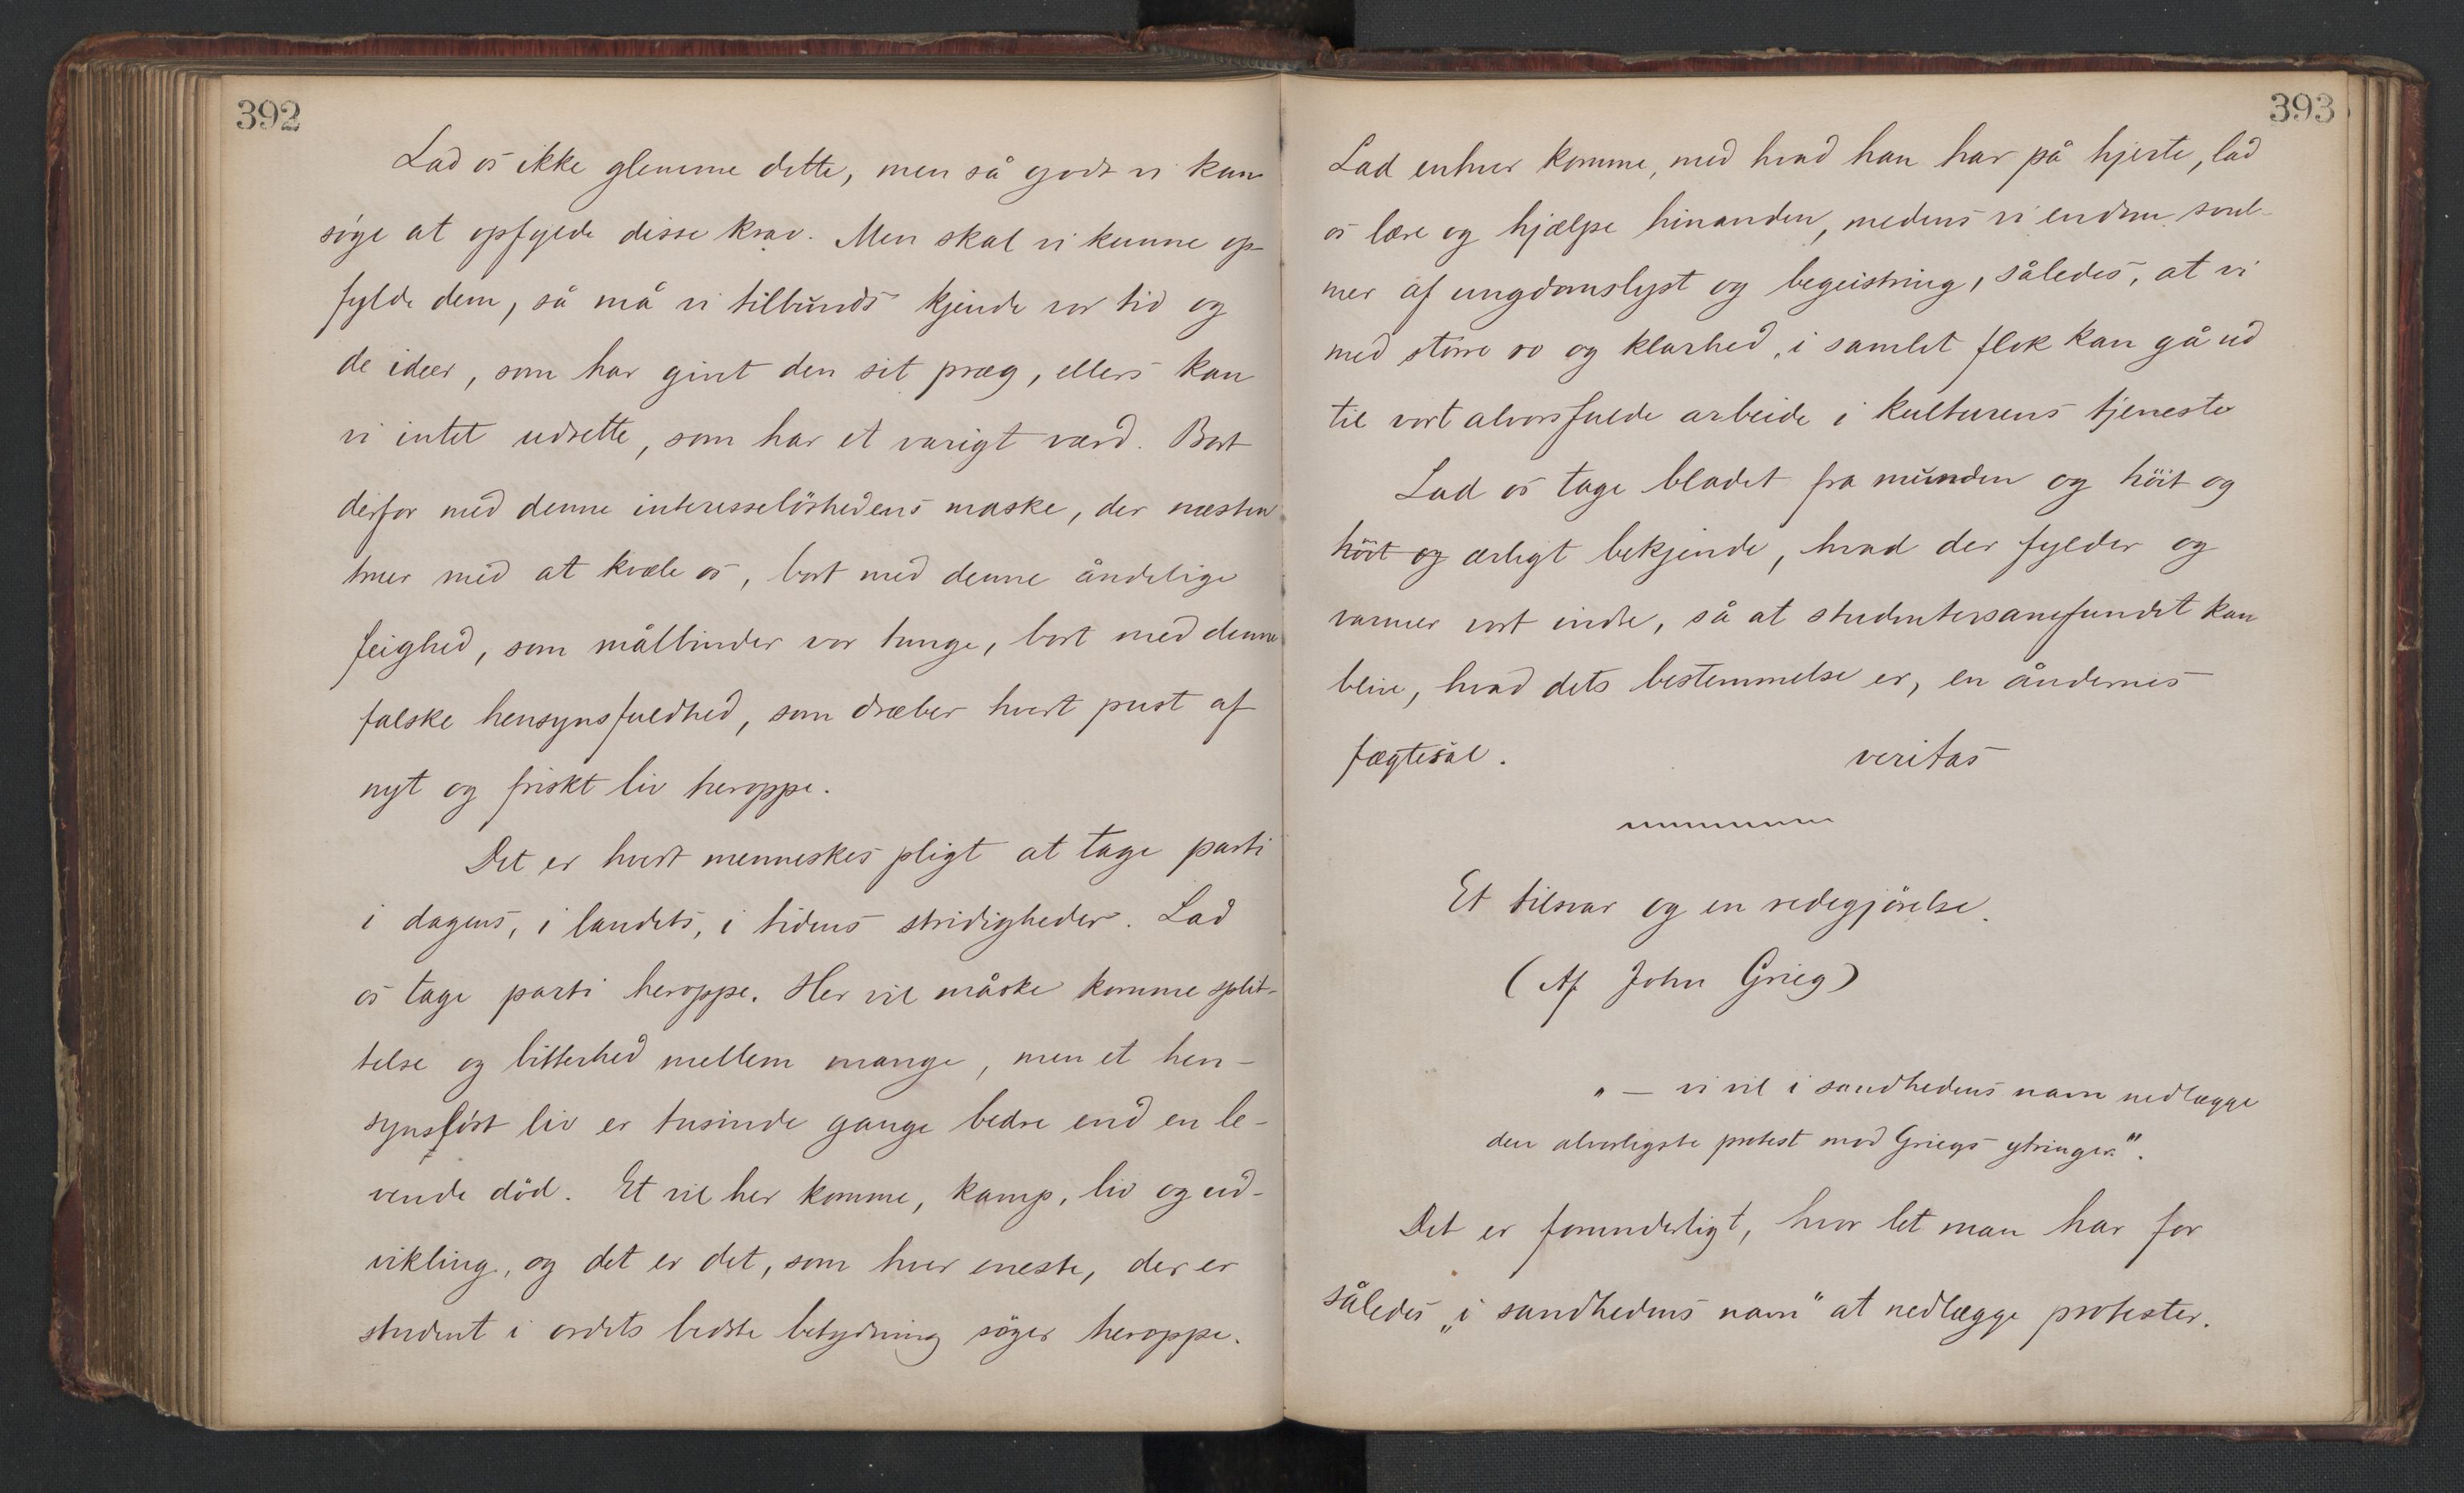 392
Lad os ikke glemme dette, men så godt vi kan
søge at opfylde disse krav. Men skal vi kunne op-
fylde dem, så må vi tilbunds kjende vor tid og
de ideer, som har givt den sit præg, ellers kan
vi intet udrette, som har et varigt værd. Bort
derfor med denne interesseløshedens maske, der næsten
truer med at kvæle os, bort med denne åndelige
feighed, som målbinder vor tunge, bort med denne
falske hensynsfuldhed, som dræber hvert pust af
nyt og friskt liv heroppe.
Det er hvert menneskes pligt at tage parti
i dagens, i landets, i tidens stridigheder. Lad
os tage parti heroppe. Her vil måske komme split-
telse og bitterhed mellem mange, men et hen-
synsløst liv er tusinde gange bedre end en le-
vende död. Et vil her komme, kamp, liv og ud-
vikling, og det er det, som hver eneste, der er
student i ordets bedste betydning søger heroppe.
393
Lad enhver komme, med hvad han har på hjerte, lad
os lære og hjælpe hinanden, medens vi endnu svul-
mer af ungdomslyst og begeistring, således, at vi
med større ro og klarhed, i samlet flok kan gå ud
til vort alvorsfulde arbeide i kulturens tjeneste
Lad os tage bladet fra munden og höit og
höit og ærligt bekjende, hvad der fylder og
varmer vort indre, så at studentersamfundet kan
blive, hvad dets bestemmelse er, en åndernes
fægtesal. veritas
Et tilsvar og en redegjörelse.
(Af John Grieg)
" — vi vil i sandhedens navn nedlægge
den alvorligste protest mod Griegs ytringer".
Det er forunderligt, hvor let man har for
således „i sandhedens navn" at nedlægge protester.